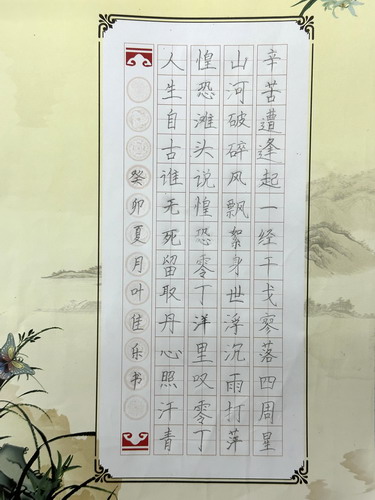 辛苦遭逢起一经干戈寥落四周星
山河破碎风飘絮身世浮沉雨打萍
惶恐滩头说惶恐零丁洋里叹零丁
人生自古谁无死留取丹心照汗青
癸卯夏月叶佳乐书